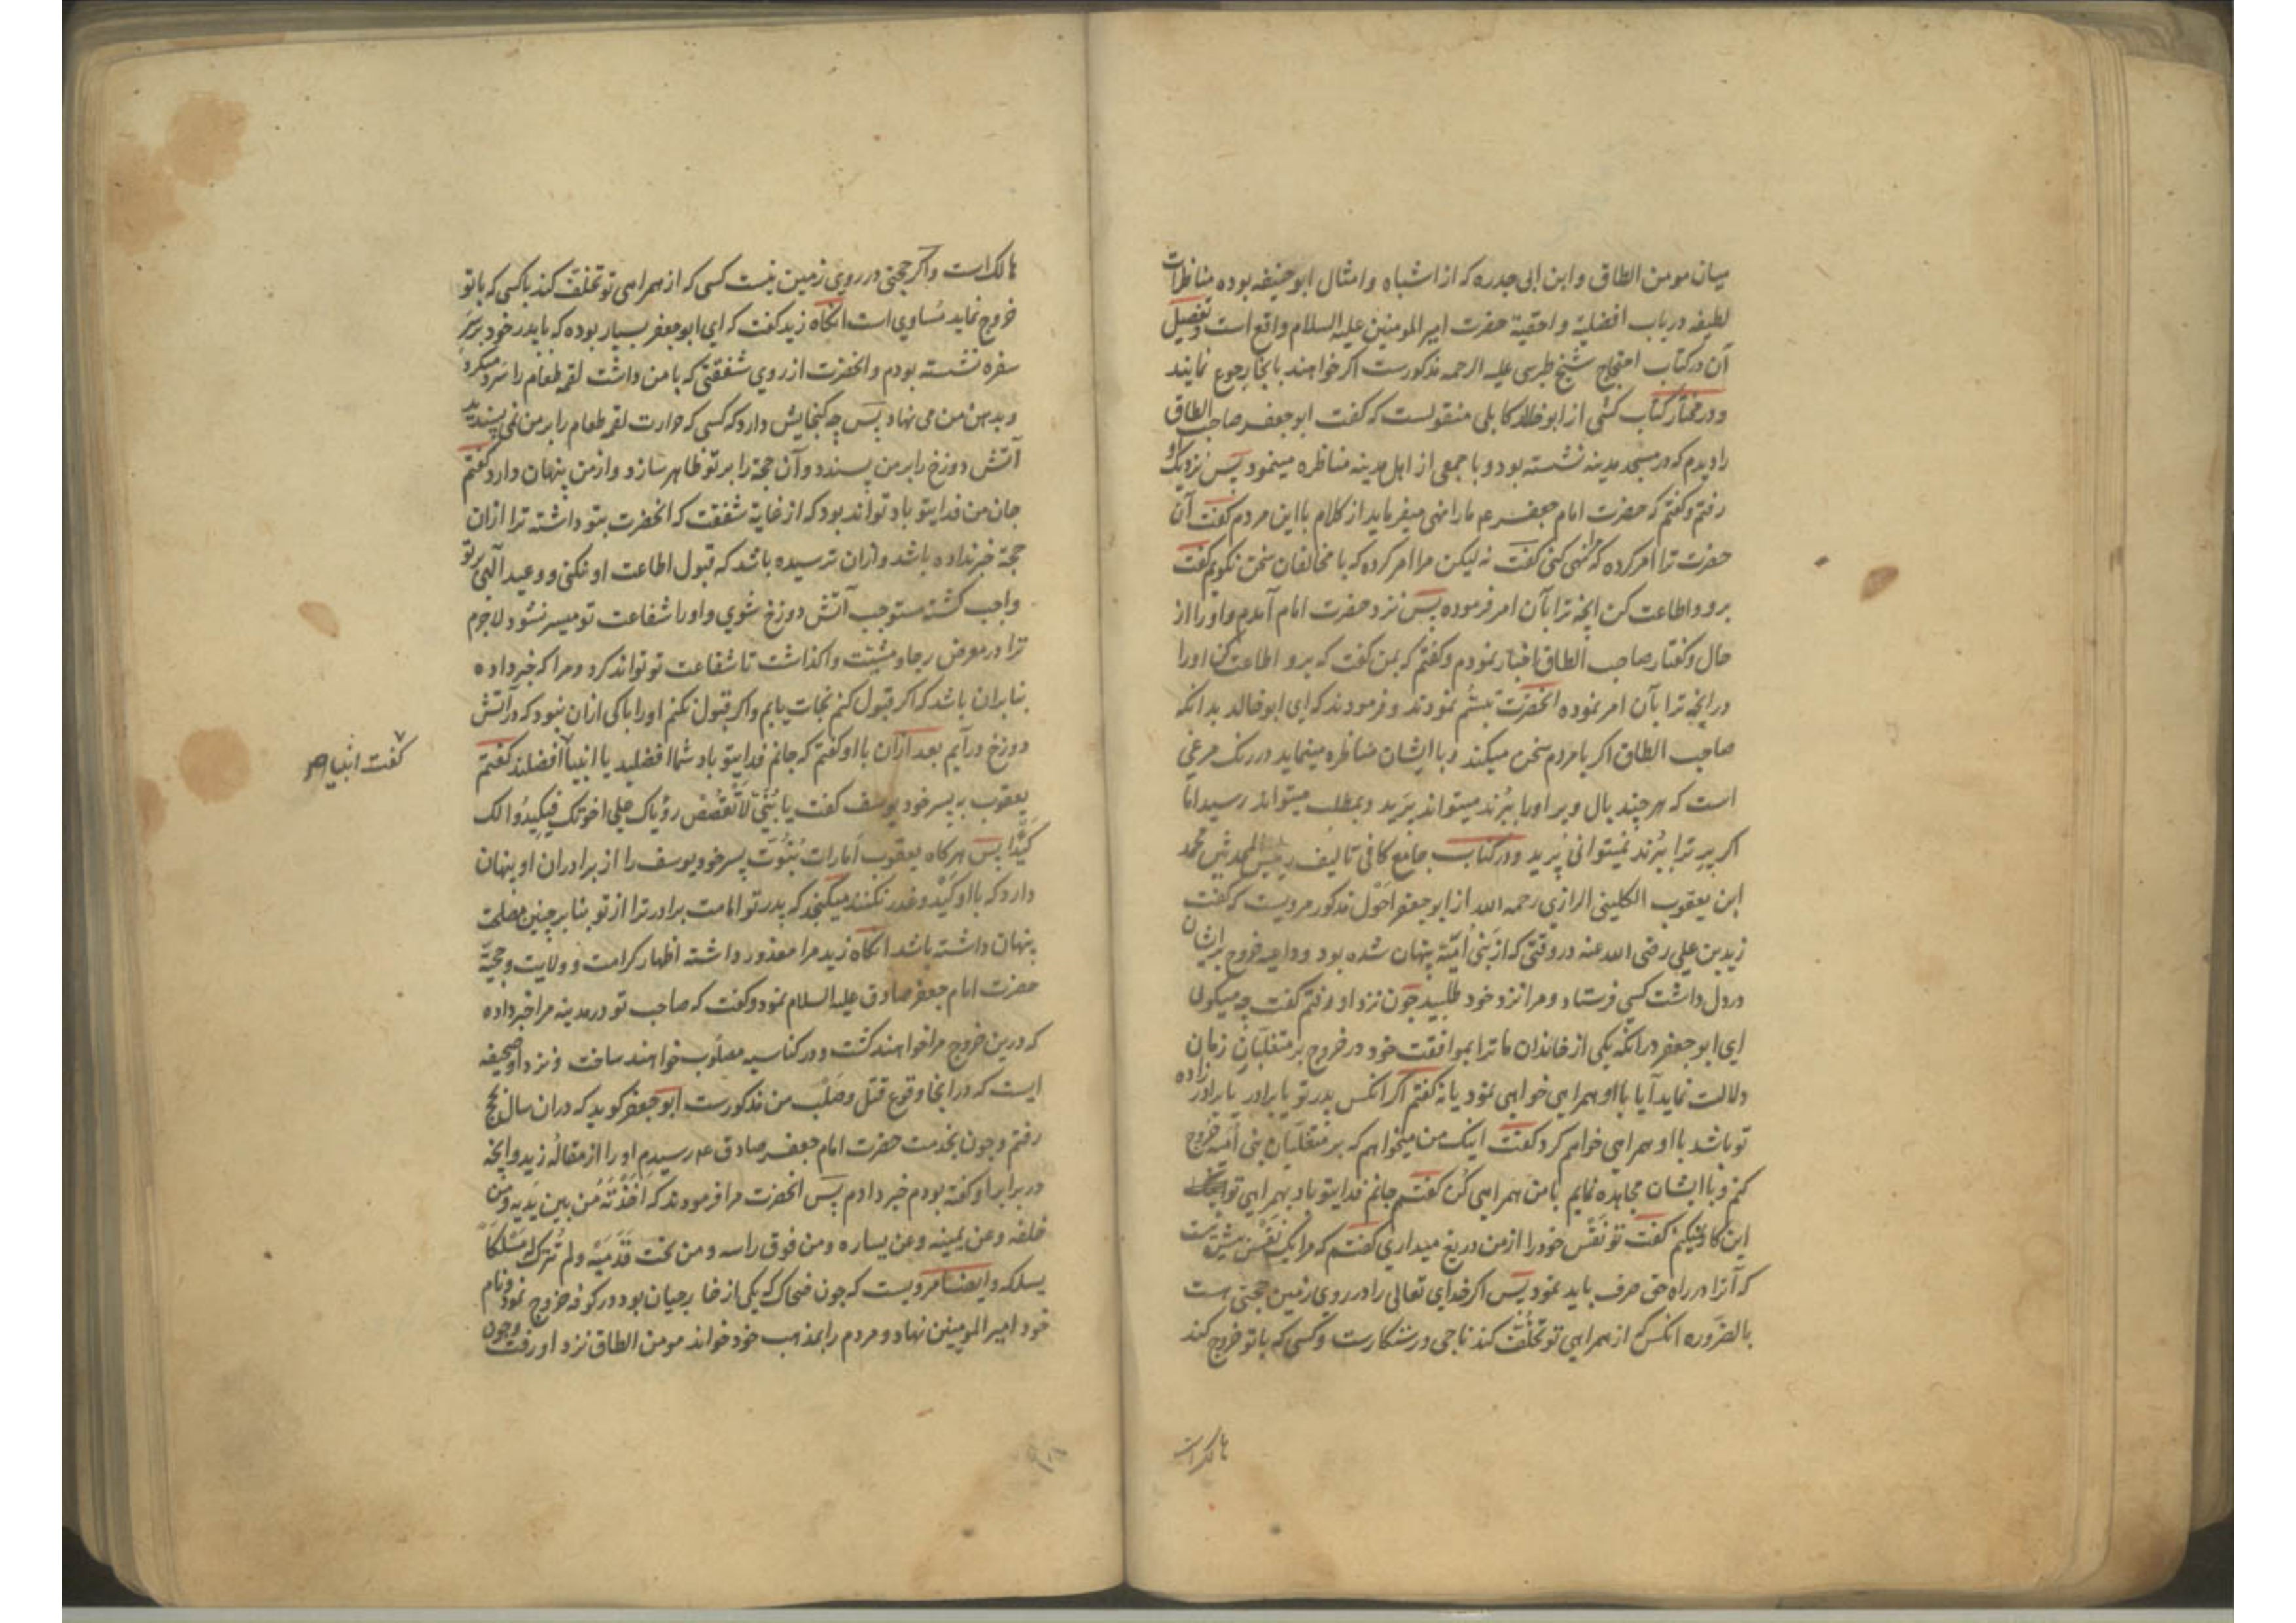 میان مومن الطاق و ابن ابی جدره که از اشباه و امثال ابو حنیفه بوده مناظرات
لطیفه در باب افضلیة و احقیة حضرت امیر المومنین علیه السلام واقع است و تفصیل
آن در کتاب احتجاج شیخ طبرسی علیه الرحمه مذکورست اکر خواهند بانجا رجوع نمایند
و در مختار کتاب کشی از ابو خالد کابلی منقولست که کفت ابو جعفر صاحب الطاق
را دیدم که در مسجد مدینه نشسته بود و با جمعی از اهل مدینه مناظره مینمود پس نزدیک او
رفتم و کفتم که حضرت امام جعفر عم ما را نهی میفرماید از کلام با این مردم کفت آن
حضرت ترا امر کرده که مرا نهی کنی کفت نه لیکن مرا امر کرده که با مخالفان سخن نکویم کفت
برو و اطاعت کن انچه ترا بآن امر فرموده پس نزد حضرت امام آمدم و او را از
حال و کفتار صاحب الطاق اخبار نمودم و کفتم که بمن کفت که برو اطاعت کن او را
در انچه ترا بآن امر نموده انحضرت تبسّم نمودند و فرمودند که ای ابو خالد بدانکه
صاحب الطاق اکر با مردم سخن میکند و با ایشان مناظره مینماید در رنک مرغی
است که هر چند بال و پر او را ببُرند میتواند پَرید و بمطلب میتواند رسید اما
اکر پر ترا ببُرند نمیتوانی پَرید و در کتاب جامع کافی تالیف رییس المحدثین محمد
ابن یعقوب الکلینی الرازی رحمه الله از ابو جعفر احَول مذکور مرویست که کفت
زید بن علی رضی الله عنه در وقتی که از بنی اُمَیّة پنهان شده بود و داعیه خروج بر ایشان
در دل داشت کسی فرستاد و مرا نزد خود طلبید چون نزد او رفتم کفت چه میکویی
ای ابو جعفر در انکه یکی از خاندان ما ترا بموافقت خود در خروج بر متغلّبان زمان
دلالت نماید آیا با او همراهی خواهی نمود یا نه کفتم اکر انکس پدر تو یا برادر یا برادر زاده
تو باشد با او همراهی خواهم کرد کفت اینک من میخواهم که بر متغلّبان بنی اُمَیّه خروج
کنم و با ایشان مجاهده نمایم با من همراهی کُن کفتم جانم فدایتو باد بهمراهی تو
این کار نمیکنم کفت تو نَفْس خود را از من دریغ میداری کفتم که مرا یک نَفْس بیش نیست
که آنرا در راه حق صرف باید نمود پس اکر خدای تعالی را در روی زمین حجتی هست
بالضَّروره انکس که از همراهی تو تخلُّف کند ناجی و رستکارست و کسی که با تو خروج کند
هالک است
هالک است و اکر حجتی در روی زمین نیست کسی که از همراهی تو تخلف کند با کسی که با تو
خروج نماید مُساوی است انکاه زید کفت که ای ابو جعفر بسیار بوده که با پدر خود بر سَرِ
سفره نشسته بودم و انحضرت از روی شفقتی که با من داشت لقمه طعام را سَرد میکرد
و بدهن من می نهاد پس چه کنجایش دارد که کسی که حرارت لقمه طعام را بر من نمی پسندید
آتش دوزخ را بر من پسندد و آن حجة را بر تو ظاهر سازد و از من پنهان دارد کفتم
جان من فدایتو باد تواند بود که از غایة شفقت که انحضرت بتو داشته ترا ازان
حجة خبر نداده باشد و ازان ترسیده باشد که قبول اطاعت او نکنی و وعید آلهی بر تو
واجب کشته مستوجب آتش دوزخ شوی و او را شفاعت تو میسر نشود لاجرم
ترا در معرض رجا و مشیّت واکذاشت تا شفاعت تو تواند کرد و مرا که خبر داده
بنا بران باشد که اکر قبول کنم نجات یابم و اکر قبول نکنم او را باکی ازان نبود که در آتش
دوزخ درآیم بعد ازان با او کفتم که جانم فدایتو باد شما افضلید یا انبیا افضلند کفتم
کفت انبیا صح
یعقوب به پسر خود یوسف کفت یا بُنَیَّ لاَ تَقْصُص رؤیاک علی اخوتک فیکیدُوا لک
کَیْدًا پس هرکاه یعقوب اَمارات نبُوَّت پسر خود یوسف را از برادران او پنهان
دارد که با او کَیْد و غدر نکنند میکنجد که پدر تو امامت برادر ترا از تو بنا بر چنین مصلحت
پنهان داشته باشد انکاه زید مرا معذور داشته اظهار کرامت و ولایت و حجیّة
حضرت امام جعفر صادق علیه السلام نمود و کفت که صاحب تو در مدینه مرا خبر داده
که درین خروج مرا خواهند کشت و در کناسه مصلوب خواهند ساخت و نزد او صحیفه
ایست که در انجا وقوع قتل و صَلْب من مذکورست ابو جعفر کوید که دران سال بحج
رفتم و چون بخدمت حضرت امام جعفر صادق عم رسیدم او را از مقالهُ زید و انچه
در برابر او کفته بودم خبر دادم پس انحضرت مرا فرمودند که اَخَذْتَهُ مِن بین یَدَیه و مِن
خلفه و عن یمینه و عن یساره و من فوق راسه و من تحت قَدَمَیْه و لم تُترک مَسْلَکاً
یسلکه و ایضا مرویست که چون ضحاک که یکی از خارجیان بود در کوفه خروج نمود و نام
خود امیر المومنین نهاد و مردم را بمذهب خود خواند مومن الطاق نزد او رفت و چون